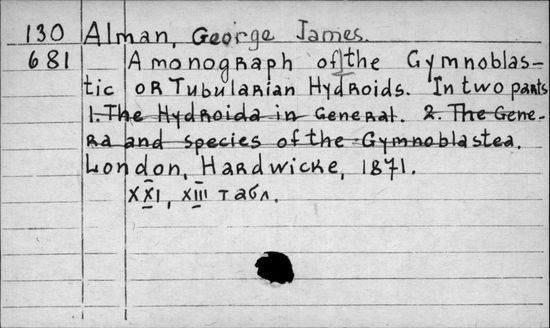 130 Alman, George James.
681 A monograph of the Gymnoblas-
tic or Tubularian Hydroids. In two parts
1. The Hydroida in General. 2. The Gene-
ra and species of the Gymnoblastea.
London, Hardwicke, 1871.
XXI, XIII табл.